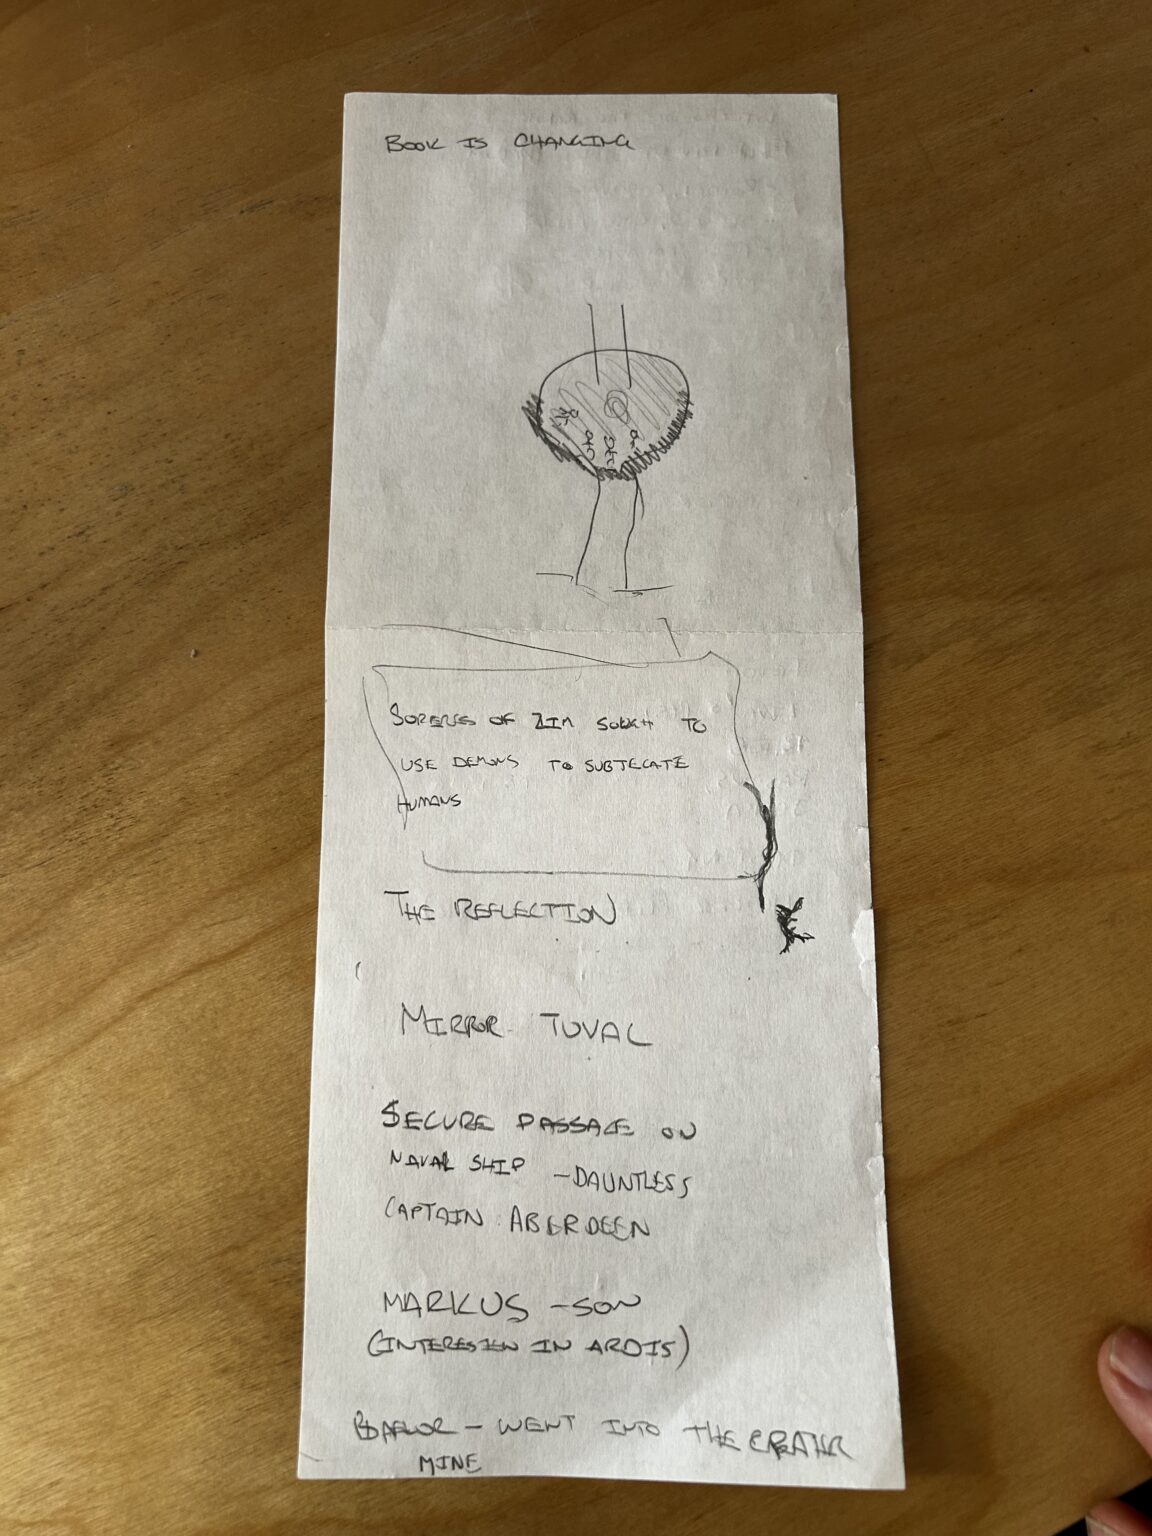 BOOK IS CHANGING
SORERES OF ZIM SOUGH TO
USE DEMONS TO SUBTECATE
HUMANS
THE REFLECTION
MIRROR TUVAL
SECURE PASSAGE ON
NAVAL SHIP - DAUNTLESS
CAPTAIN ABERDEEN
MARKUS - SON
(INTERESTEN IN ARDIS)
- WENT INTO THE CRATER
MINE